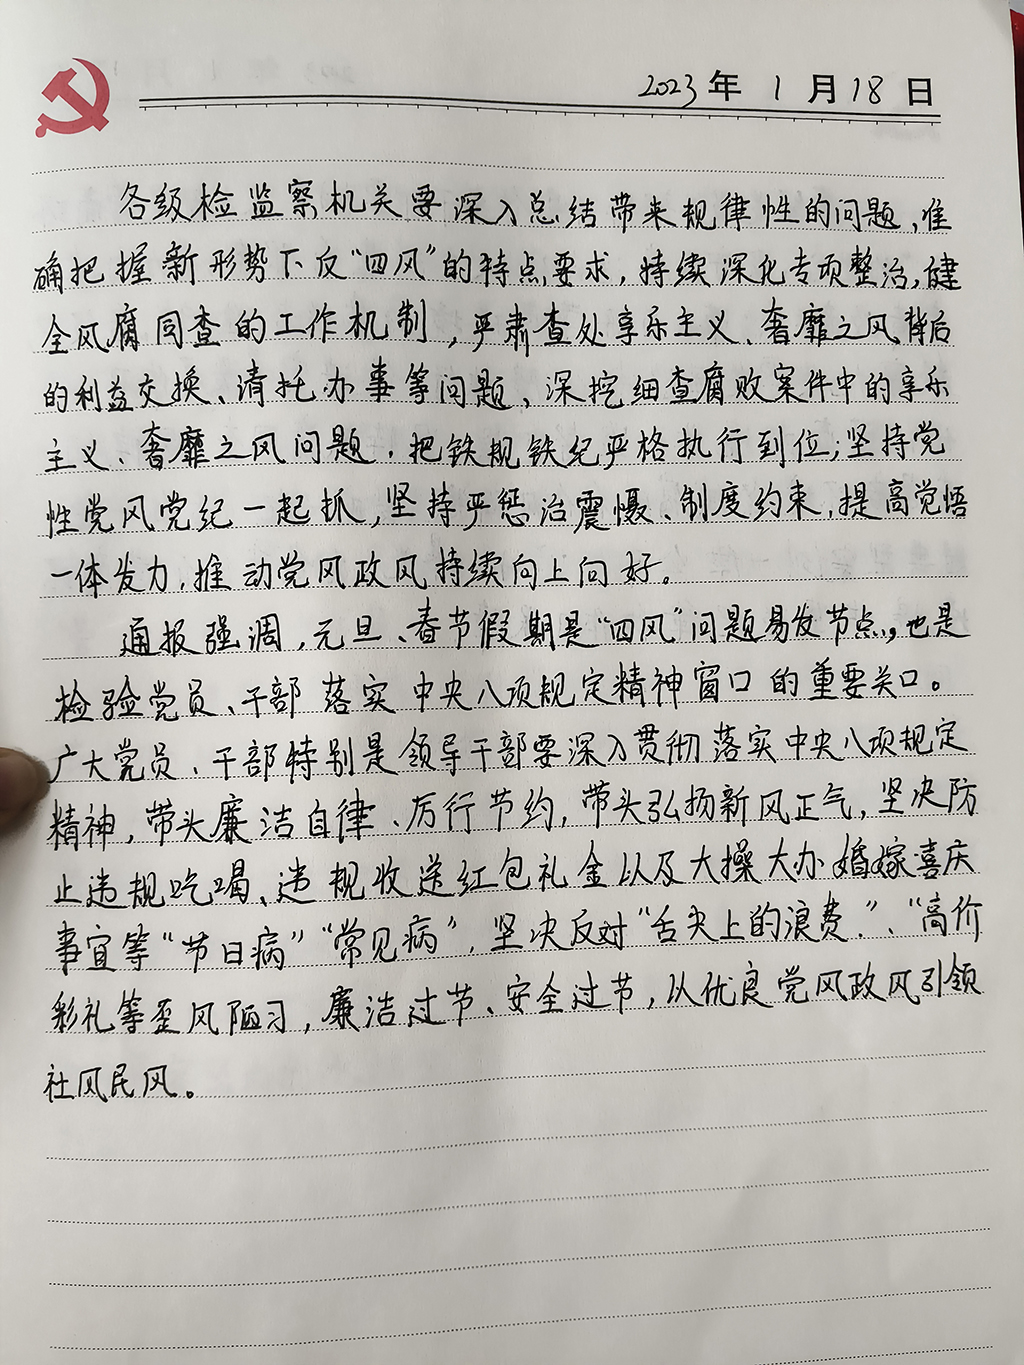 2023年 1 月 18 日
各级检监察机关要深入总结带来规律性的问题,准
确把握新形势下反“四风”的特点要求,持续深化专项整治,健
全风腐同查的工作机制,严肃查处享乐主义、奢靡之风背后
的利益交换、请托办事等问题、深挖细查腐败案件中的享乐
主义、奢靡之风问题,把铁规铁纪严格执行到位;坚持党
性党风党纪一起抓,坚持严惩治震慑、制度约束,提高觉悟
一体发力,推动党风政风持续向上向好。
通报强调,元旦、春节假期是“四风”问题易发节点,也是
检验党员、干部落实中央八项规定精神窗口的重要关口。
广大党员、干部特别是领导干部要深入贯彻落实中央八项规定
精神,带头廉洁自律、厉行节约,带头弘扬新风正气,坚决防
止违规吃喝、违规收送红包礼金以及大操大办婚嫁喜庆
事宜等“节日病”“常见病”,坚决反对“舌尖上的浪费”、“高价
彩礼等歪风陋习,廉洁过节、安全过节,以优良党风政风引领
社风民风。